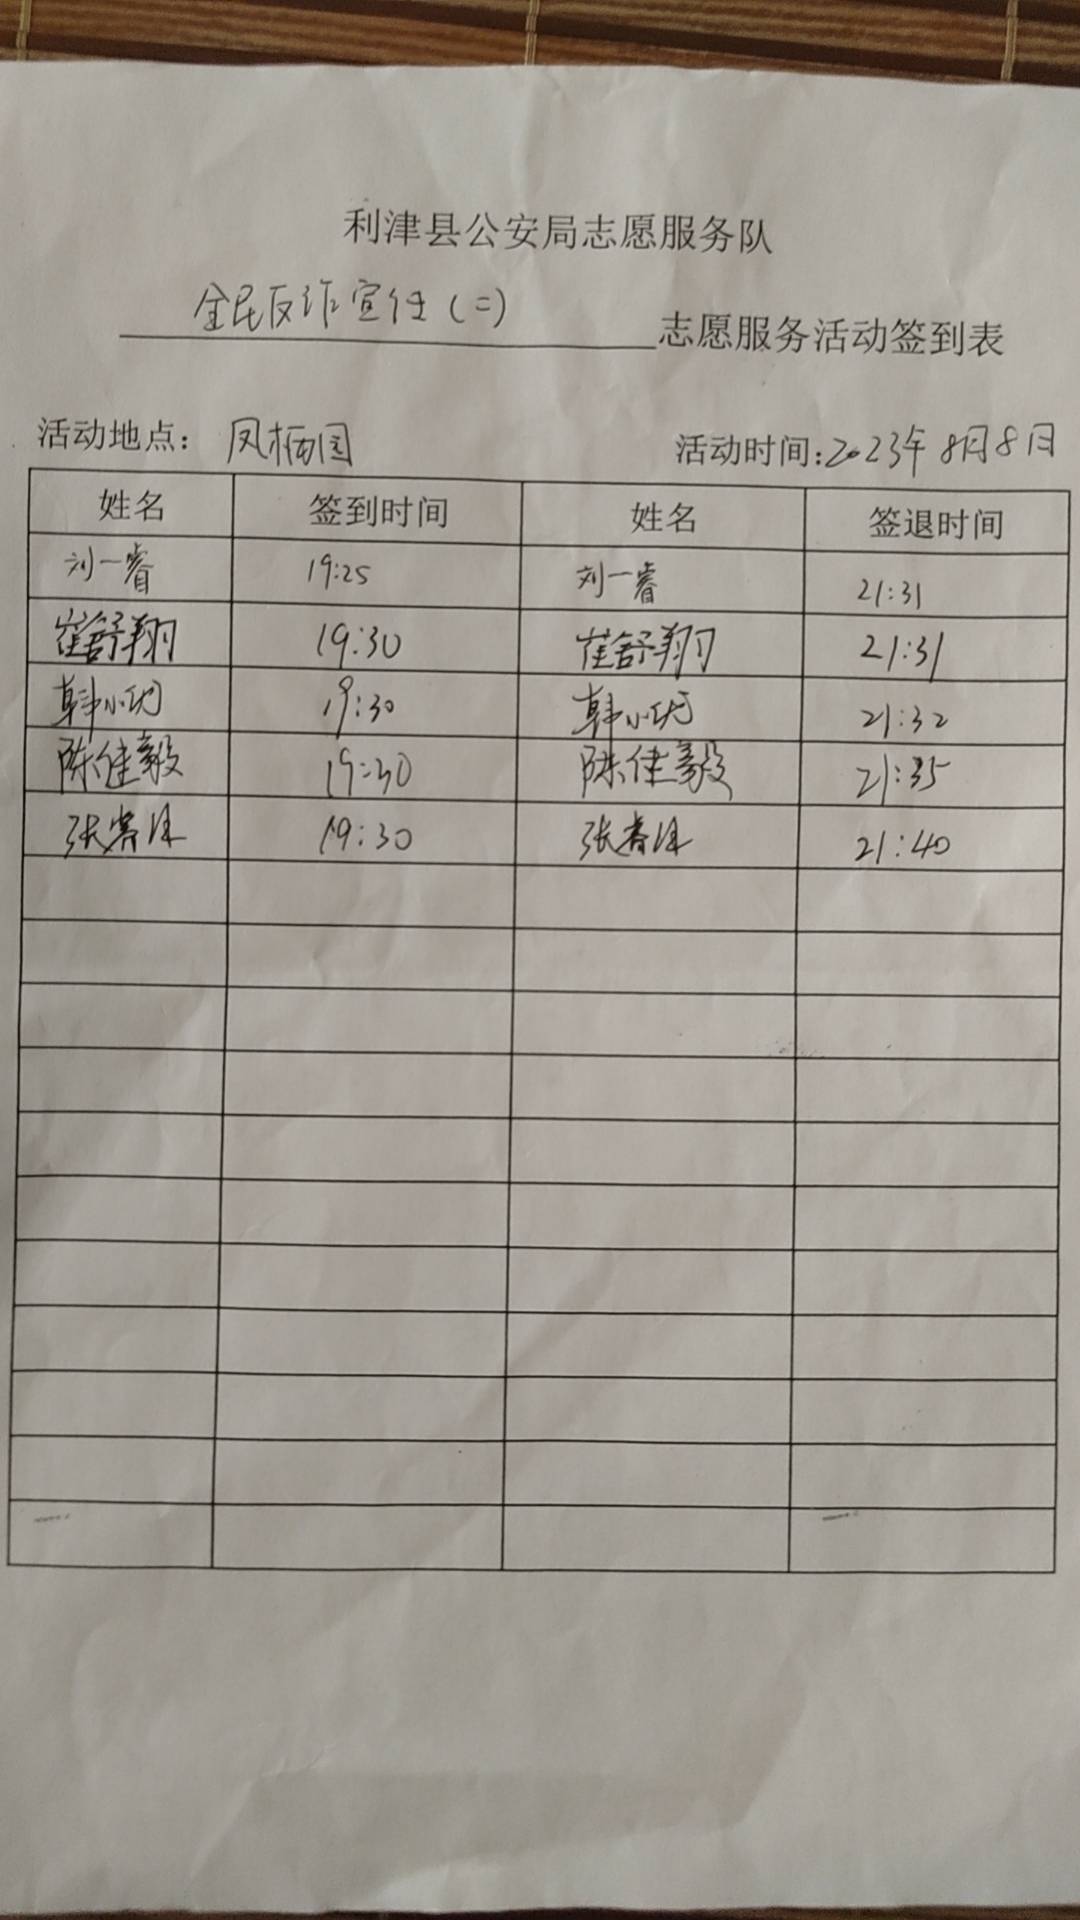 利津县公安局志愿服务队
全民反诈宣传(二) 志愿服务活动签到表
活动地点: 凤栖园 活动时间:2023年8月8日
姓名 签到时间 姓名 签退时间
刘一睿 19:25 刘一睿 21:31
崔舒翔 19:30 崔舒翔 21:31
韩小 19:30 韩小 21:32
陈健毅 19:30 陈健毅 21:35
张 19:30 张 21:40